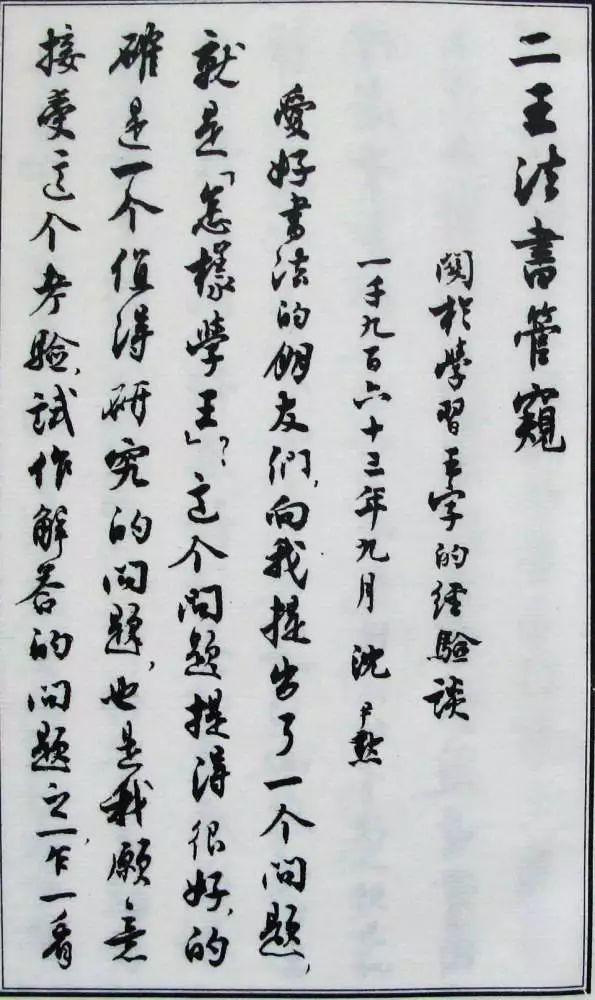 二王法書管窺
關於學習王字的經驗談
一千九百六十三年九月 沈尹默
愛好書法的朋友們,向我提出了一个問題,
就是「怎樣學王」?这个問題提得很好,的
確是一个值得研究的問題,也是我願意
接受这个考驗,試作解答的問題之一,乍一看